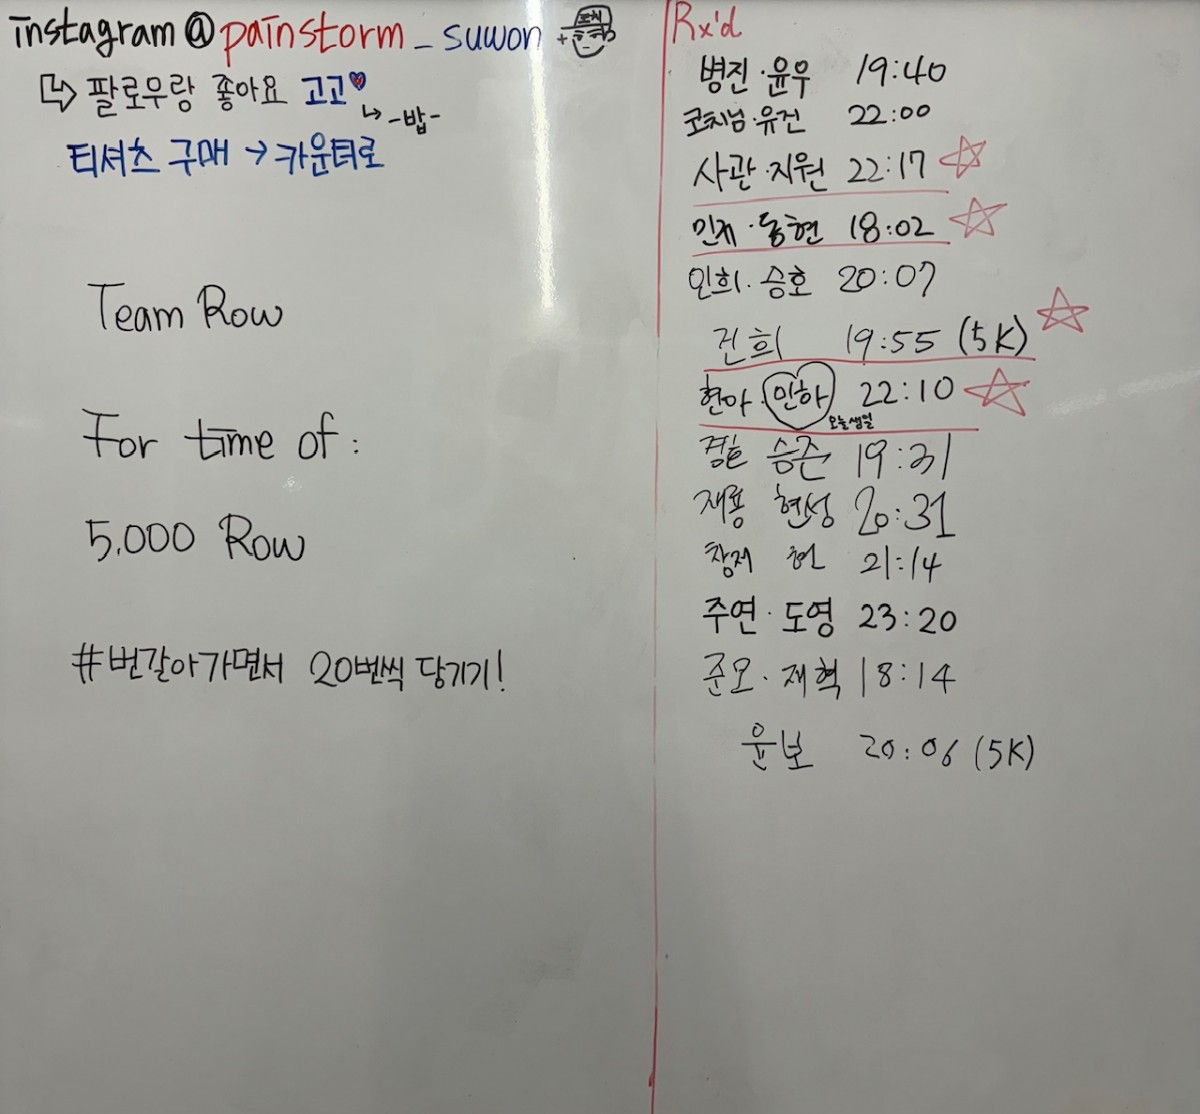 instagram@painstorm_suwon
팔로우랑 좋아요 고고
-밥-
티셔츠 구매 → 카운터로
Team Row
For time of :
5,000 Row
#번갈아가면서 20번씩 당기기!
Rx'd
병진·윤우 19:40
코치님·유건 22:00
사관·지원 22:17
민지·동현 18:02
민희·승호 20:07
건희 19:55 (5K)
현아·민하 22:10
오늘생일
승준 19:31
재용 현성 20:31
창저 현 21:14
주연·도영 23:20
준모·재혁 18:14
윤보 20:06 (5K)